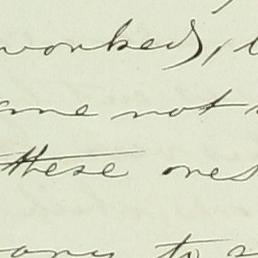 worked),
not
these ones
to